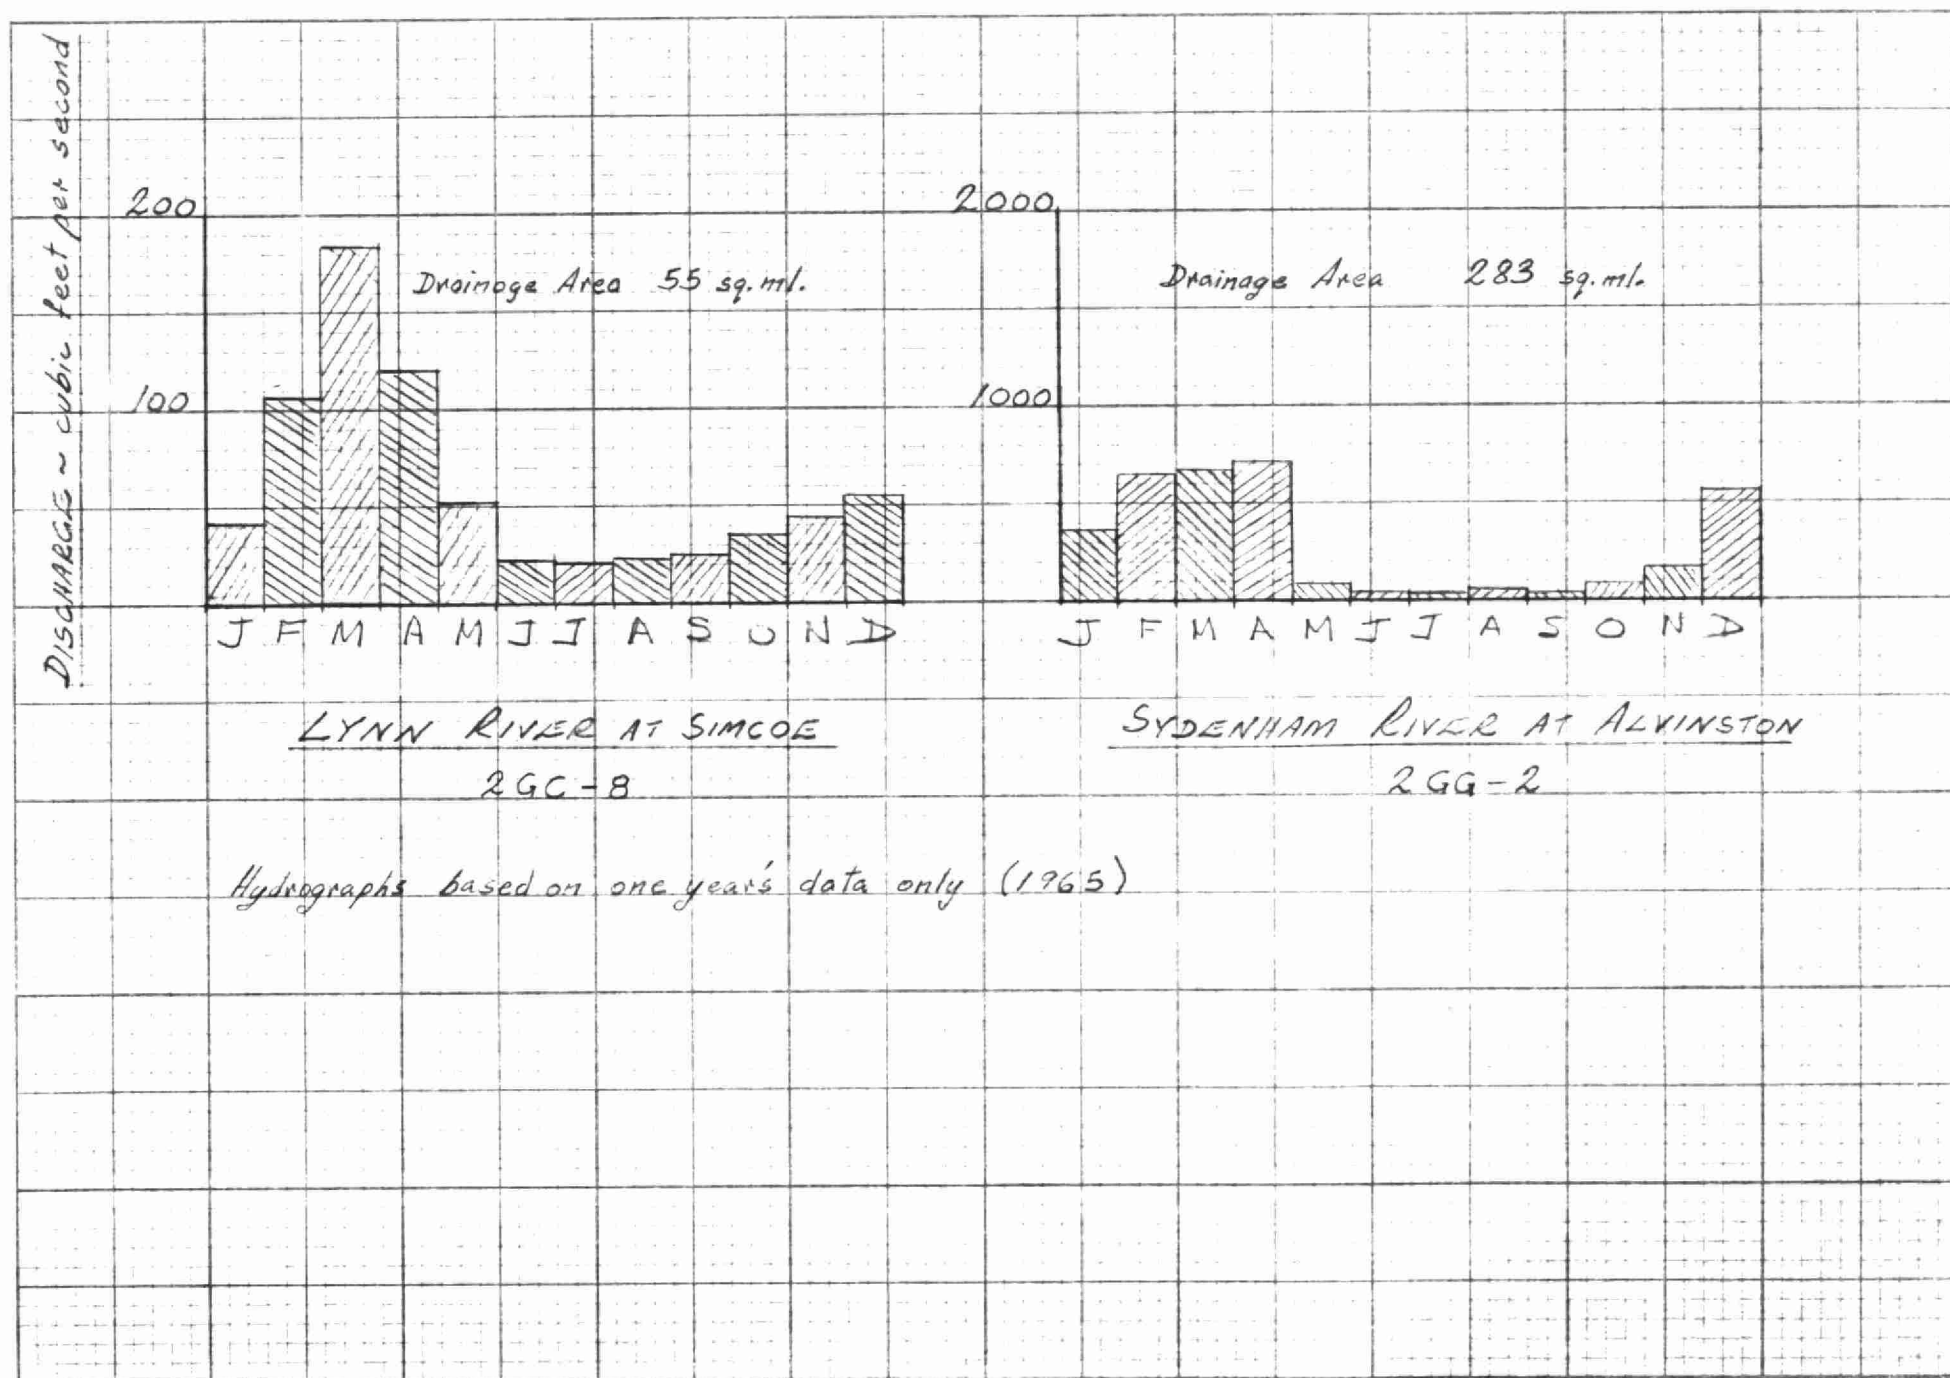 DISCHARGE ~ cubic feet per second
200
100
Drainage Area 55 sq. ml.
J F M A M J J A S O N D
LYNN RIVER AT SIMCOE
2GC-8
2000
1000
Drainage Area 283 sq. ml.
J F M A M J J A S O N D
SYDENHAM RIVER AT ALVINSTON
2GG-2
Hydrographs based on one year's data only (1965)